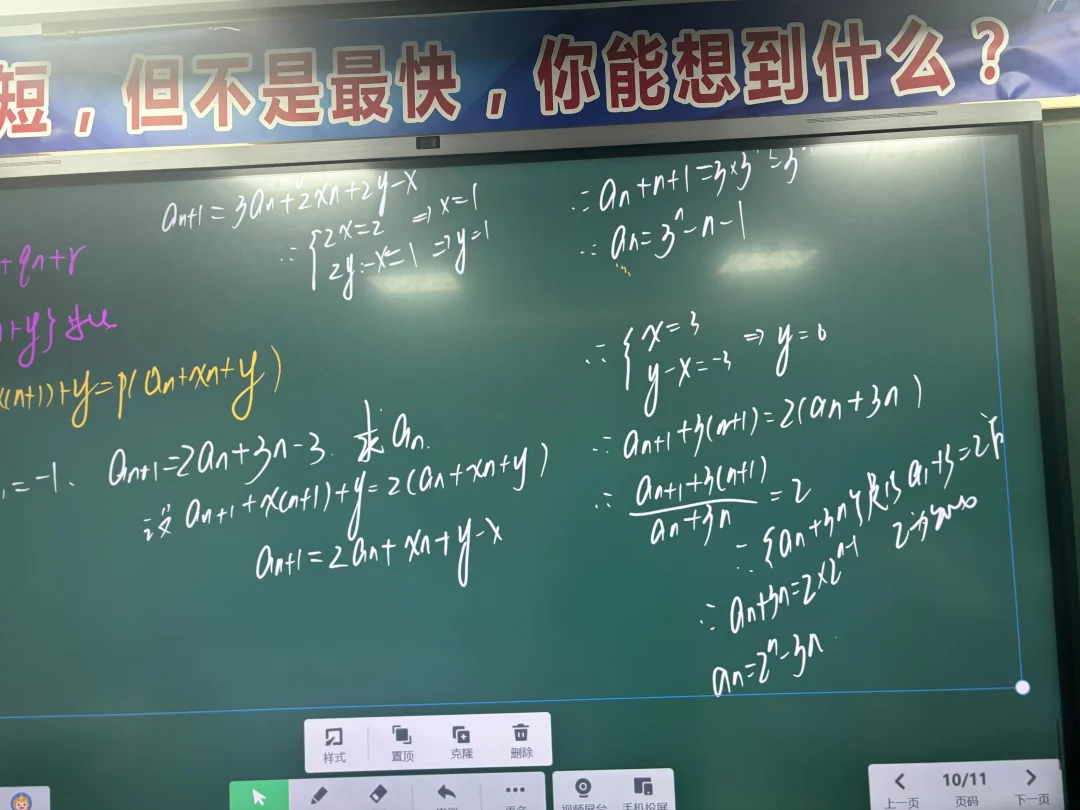 短，但不是最快，你能想到什么？
aₙ₊₁=3aₙ+2xn+2y-x
∴{2x=2 ⇒x=1
2y-x=1 ⇒y=1
∴aₙ+n+1=3×3
∴aₙ=3ⁿ-n-1
+qn+r
+y}
x(n+1)+y=p(aₙ+xn+y)
=-1、aₙ₊₁=2aₙ+3n-3. 求aₙ.
设aₙ₊₁+x(n+1)+y=2(aₙ+xn+y)
aₙ₊₁=2aₙ+xn+y-x
∴{x=3
y-x=-3 ⇒y=0
∴aₙ₊₁+3(n+1)=2(aₙ+3n)
∴aₙ₊₁+3(n+1)/aₙ+3n=2
∴{aₙ+3n}是以a₁+3=2
2
∴aₙ+3n=2×2ⁿ⁻¹
aₙ=2ⁿ-3n
样式 置顶 克隆 删除
10/11
上一页 页码 下一页